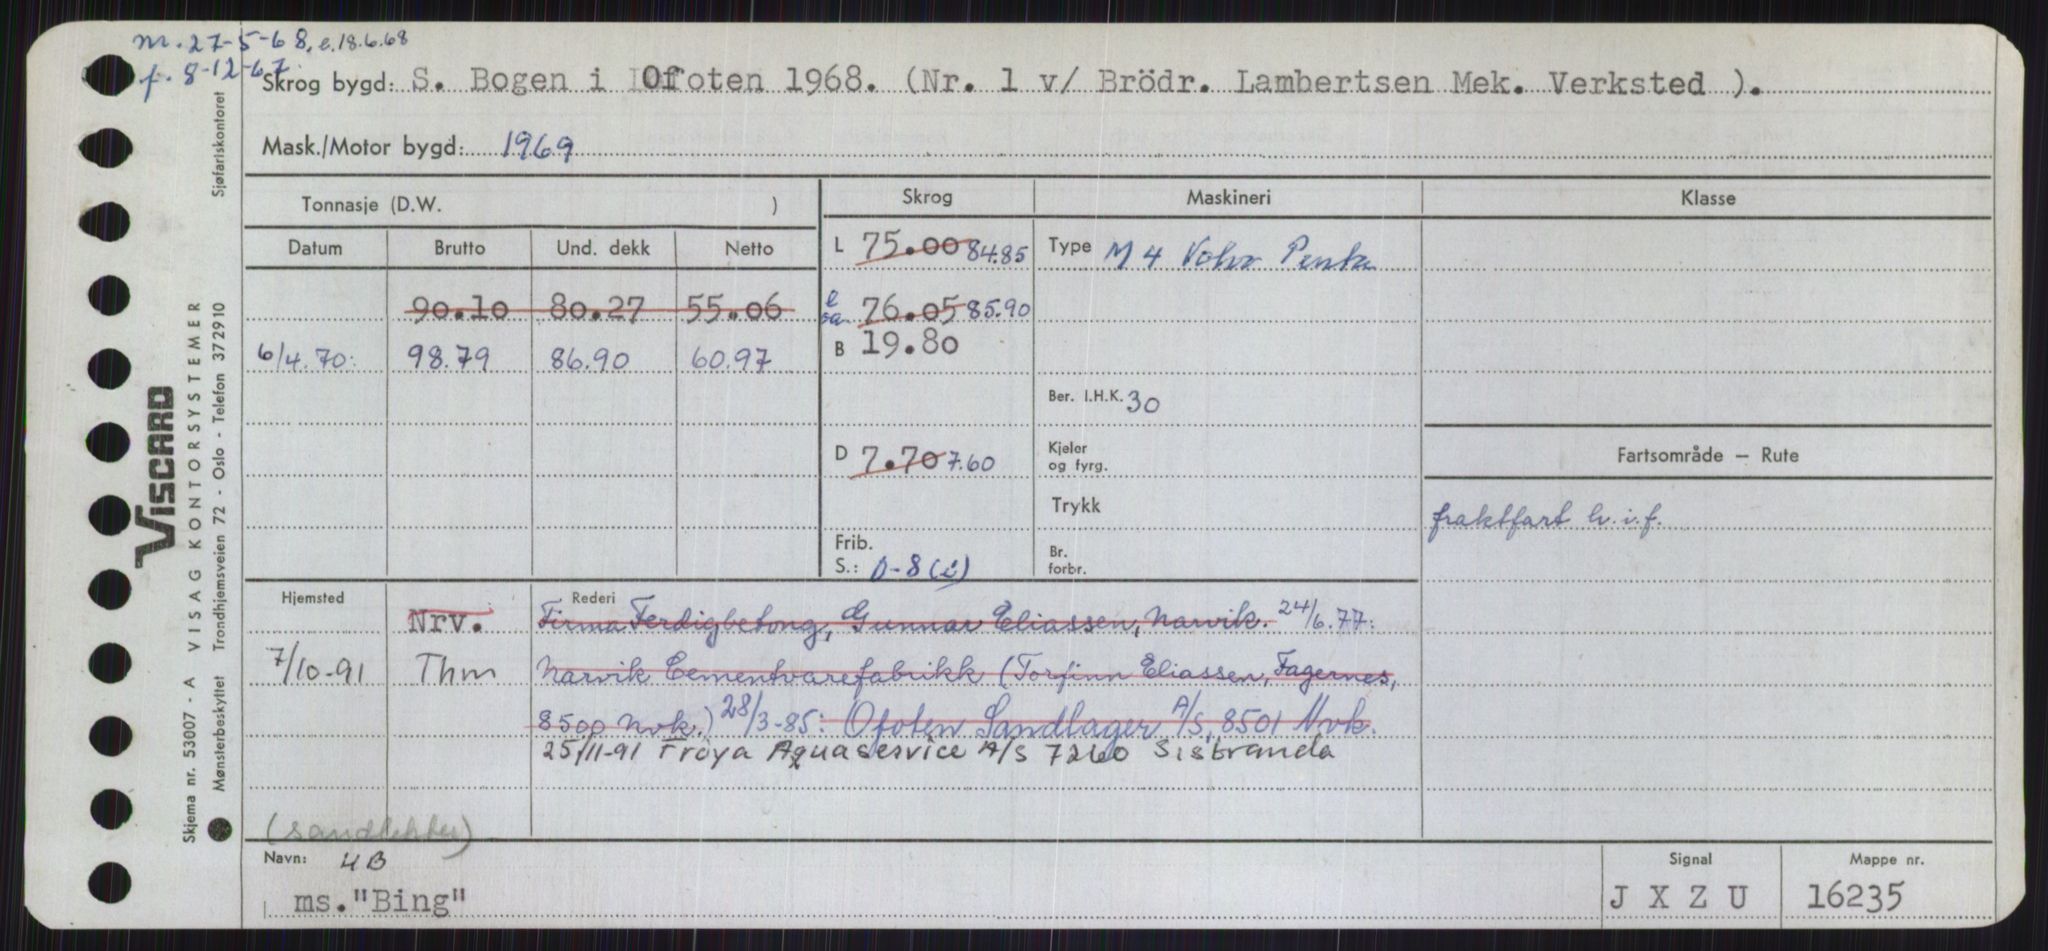 m. 27-5-68, e. 18.6.68
f. 8-12-67.
Skrog bygd: S. Bogen i Ofoten 1968. (Nr. 1 v/ Brödr. Lambertsen Mek. Verksted ).
Mask./Motor bygd: 1969
Tonnasje (D.W. ) Skrog Maskineri Klasse
Datum Brutto Und. dekk Netto L 75.00 84.85 Type M 4 Volvo Penta
90.10 80.27 55.06 76.05 85.90
6/4.70: 98.79 86.90 60.97 B 19.80
Ber. I.H.K. 30
D 7.70 7.60 Kjeler og fyrg. Fartsområde — Rute
Trykk fraktfart h.i.f.
Frib. S.: D-8(i) Br. forbr.
Hjemsted Rederi
Nrv. Firma Ferdigbetong, Gunnar Eliassen, Narvik. 24/6.77:
7/10-91 Thm Narvik Cementvarefabrikk (Torfinn Eliassen, Fagernes,
8500 Nvk.) 28/3-85: Ofoten Sandlager A/S, 8501 Nvk.
25/11-91 Frøya Aquaservice A/S 7260 Sisbranda
(sandlekter)
Navn: 4B Signal Mappe nr.
ms. "Bing" J X Z U 16235
VISCARD
Skjema nr. 53007 - A VISAG KONTORSYSTEMER
Mønsterbeskyttet Trondhjemsveien 72 - Oslo - Telefon 372910 Sjøfartskontoret